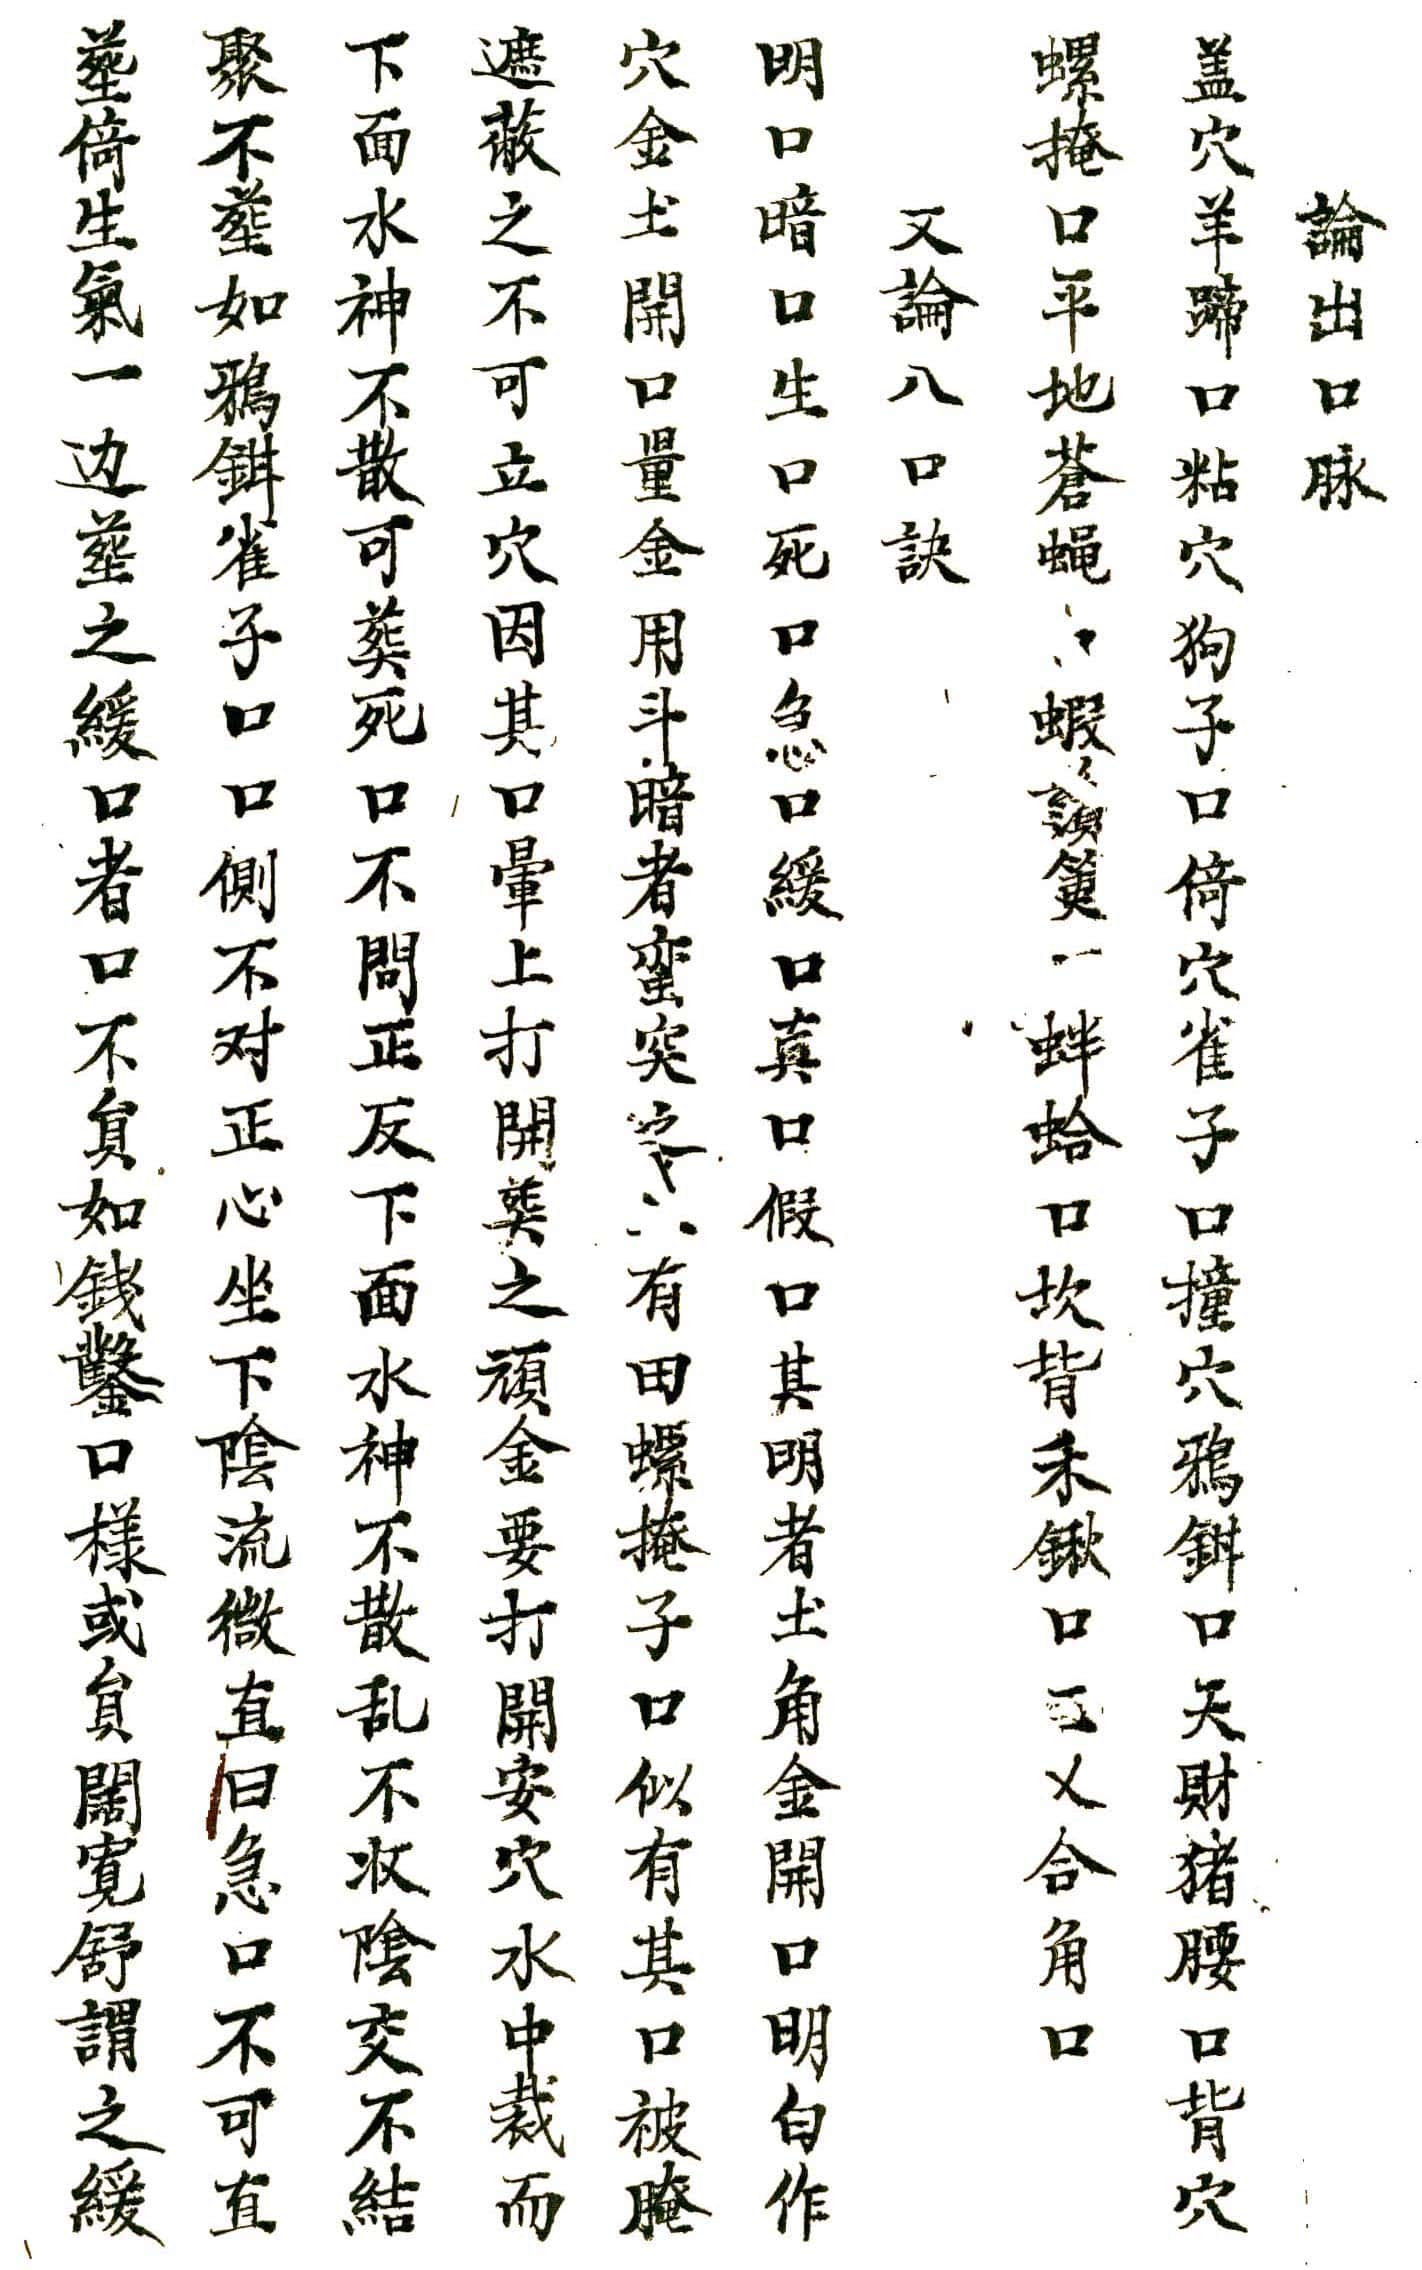 論出口脉
盖穴羊蹄口粘穴狗子口倚穴雀子口撞穴鴉鉗口天財猪腰口背穴
螺掩口平地蒼蝇蝦簧一蚌蛤口坎背禾鍬口乂合角口
又論八口訣
明口暗口生口死口急口緩口真口假口其明者土角金開口明白作
穴金土開口量金用斗暗者蛮突有田螺掩子口似有其口被腌
遮蔽之不可立穴因其口暈上打開葬之頑金要打開安穴水中裁而
下面水神不散可葬死口不問正反下面水神不散乱不收陰交不結
聚不塟如鴉鉗雀子口口側不对正心坐下陰流微直曰急口不可直
塟倚生氣一边塟之緩口者口不負如銭鑿口様或負闊寬舒謂之緩